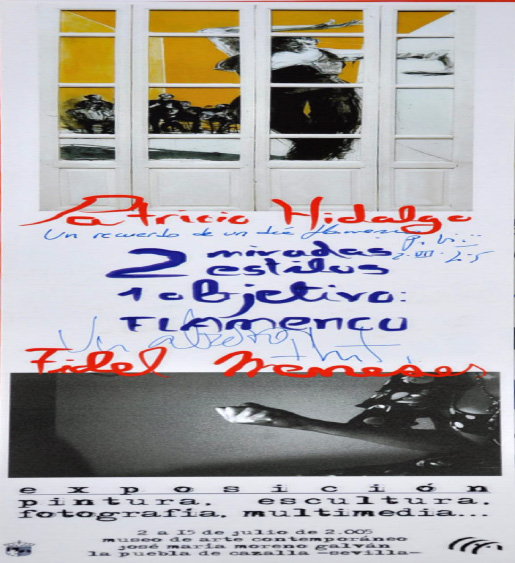 Patricio Hidalgo
Un recuerdo de un día flamenco
2 miradas
estilos
1 objetivo:
FLAMENCO
Un abrazo
Fidel Meneses
exposición
pintura, escultura,
fotografía, multimedia...
2 a 15 de julio de 2.005
museo de arte contemporáneo
josé maría moreno galván
la puebla de cazalla -sevilla-